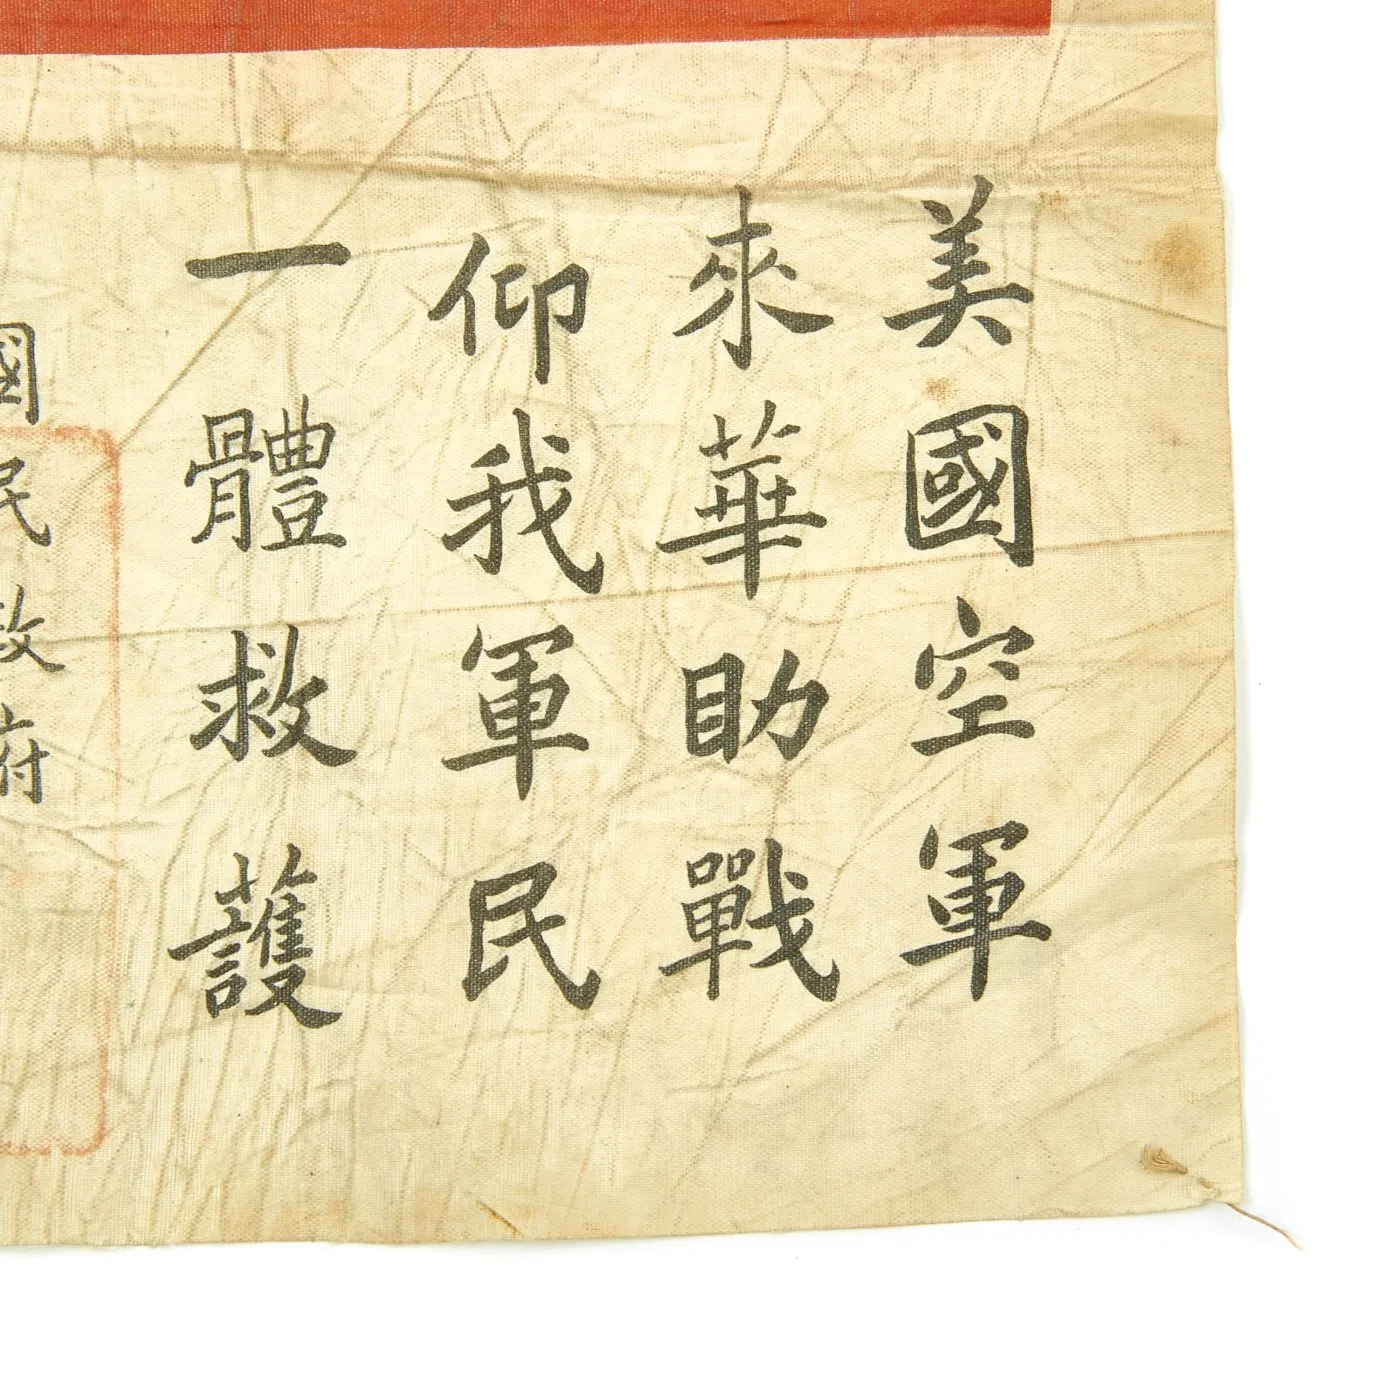 美國空軍
來華助戰
仰我軍民
一體救護
國民政府